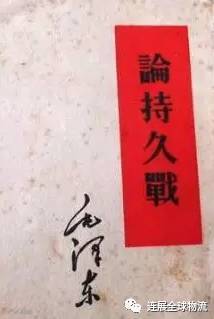 論持久戰
毛泽东
连展全球物流